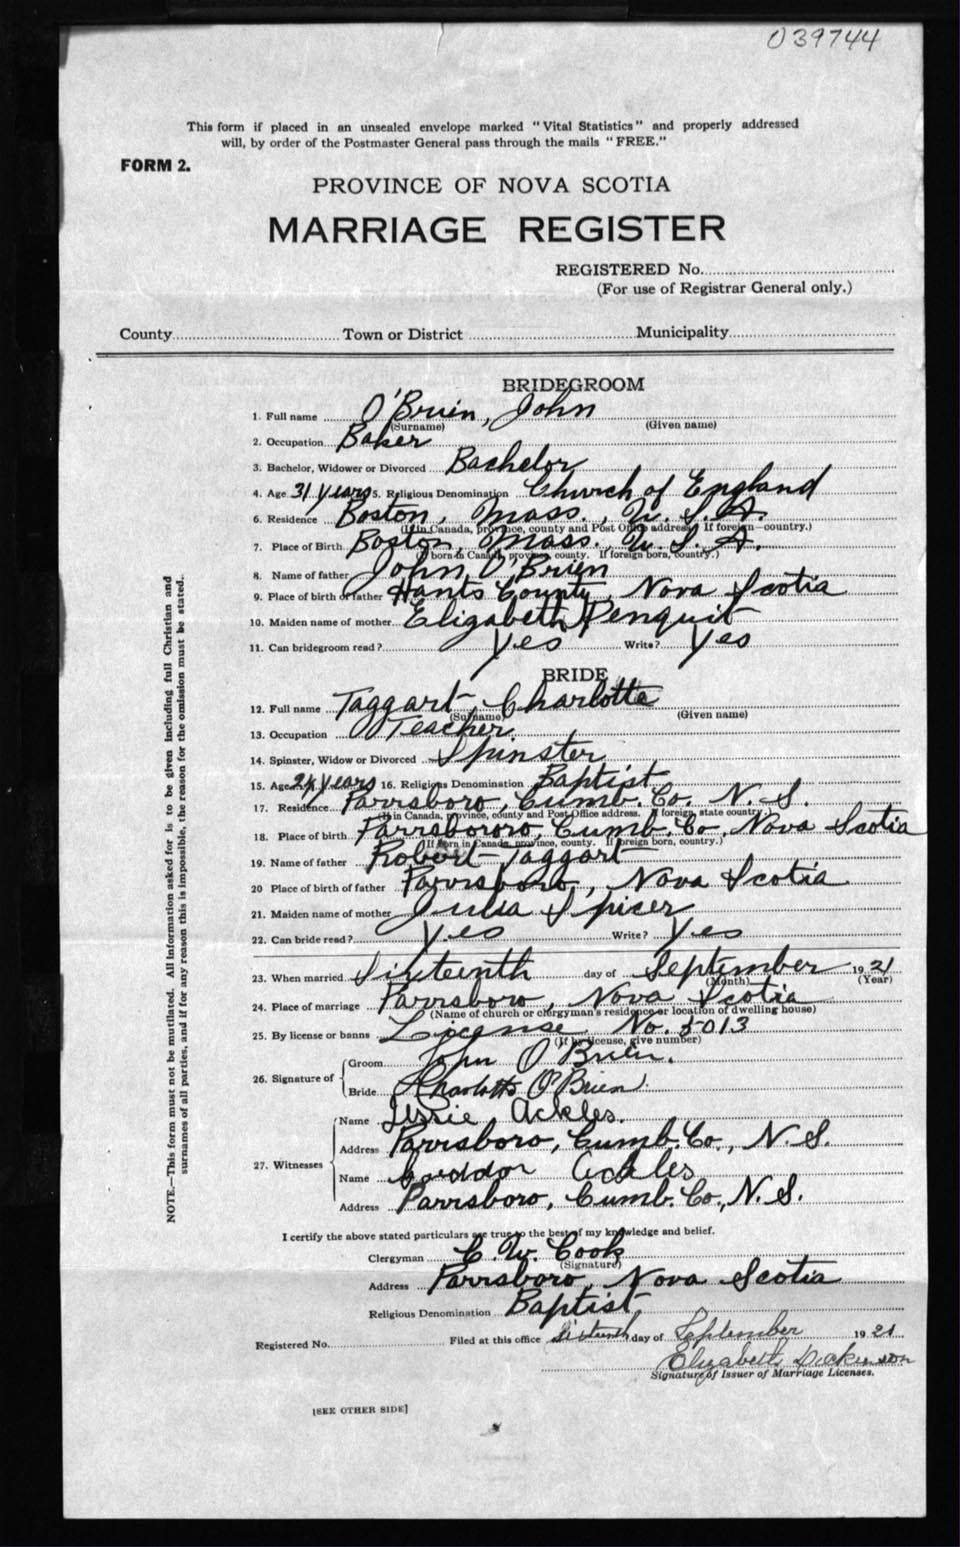 039744
This form if placed in an unsealed envelope marked "Vital Statistics" and properly addressed
will, by order of the Postmaster General pass through the mails "FREE."
FORM 2.
PROVINCE OF NOVA SCOTIA
MARRIAGE REGISTER
REGISTERED No.
(For use of Registrar General only.)
County Town or District Municipality
BRIDEGROOM
1. Full name O'Brien, John
(Surname) (Given name)
2. Occupation Baker
3. Bachelor, Widower or Divorced Bachelor
4. Age 31 years 5. Religious Denomination Church of England
6. Residence Boston, Mass., U.S.A.
(If in Canada, province, county and Post Office address. If foreign—country.)
7. Place of Birth Boston, Mass., U.S.A.
(If born in Canada, province, county. If foreign born, country.)
8. Name of father John O'Brien
9. Place of birth of father Hants County, Nova Scotia
10. Maiden name of mother Elizabeth Penquit
11. Can bridegroom read? Yes Write? Yes
BRIDE
12. Full name Taggart, Charlotte
(Surname) (Given name)
13. Occupation Teacher
14. Spinster, Widow or Divorced Spinster
15. Age years 16. Religious Denomination Baptist
17. Residence Parrsboro, Cumb. Co. N.S.
(If in Canada, province, county and Post Office address. If foreign, state country.)
18. Place of birth Parrsbororo, Cumb. Co, Nova Scotia
(If born in Canada, province, county. If foreign born, country.)
19. Name of father Robert Taggart
20 Place of birth of father Parrsboro, Nova Scotia
21. Maiden name of mother Julia Spicer
22. Can bride read? Yes Write? Yes
23. When married Sixteenth day of September 1921
(Month) (Year)
24. Place of marriage Parrsboro, Nova Scotia
(Name of church or clergyman's residence or location of dwelling house)
25. By license or banns License No. 5013
(If by license, give number)
26. Signature of Groom John O'Brien.
Bride Charlotte O'Brien.
27. Witnesses Name Jessie Ackles.
Address Parrsboro, Cumb. Co., N.S.
Name Ackles
Address Parrsboro, Cumb. Co., N.S.
I certify the above stated particulars are true to the best of my knowledge and belief.
Clergyman C. W. Cook
(Signature)
Address Parrsboro, Nova Scotia
Religious Denomination Baptist
Registered No. Filed at this office Sixteenth day of September 1921
Elizabeth Dickinson
Signature of Issuer of Marriage Licenses.
[SEE OTHER SIDE]
NOTE.—This form must not be mutilated. All information asked for is to be given including full Christian and
surnames of all parties, and if for any reason this is impossible, the reason for the omission must be stated.